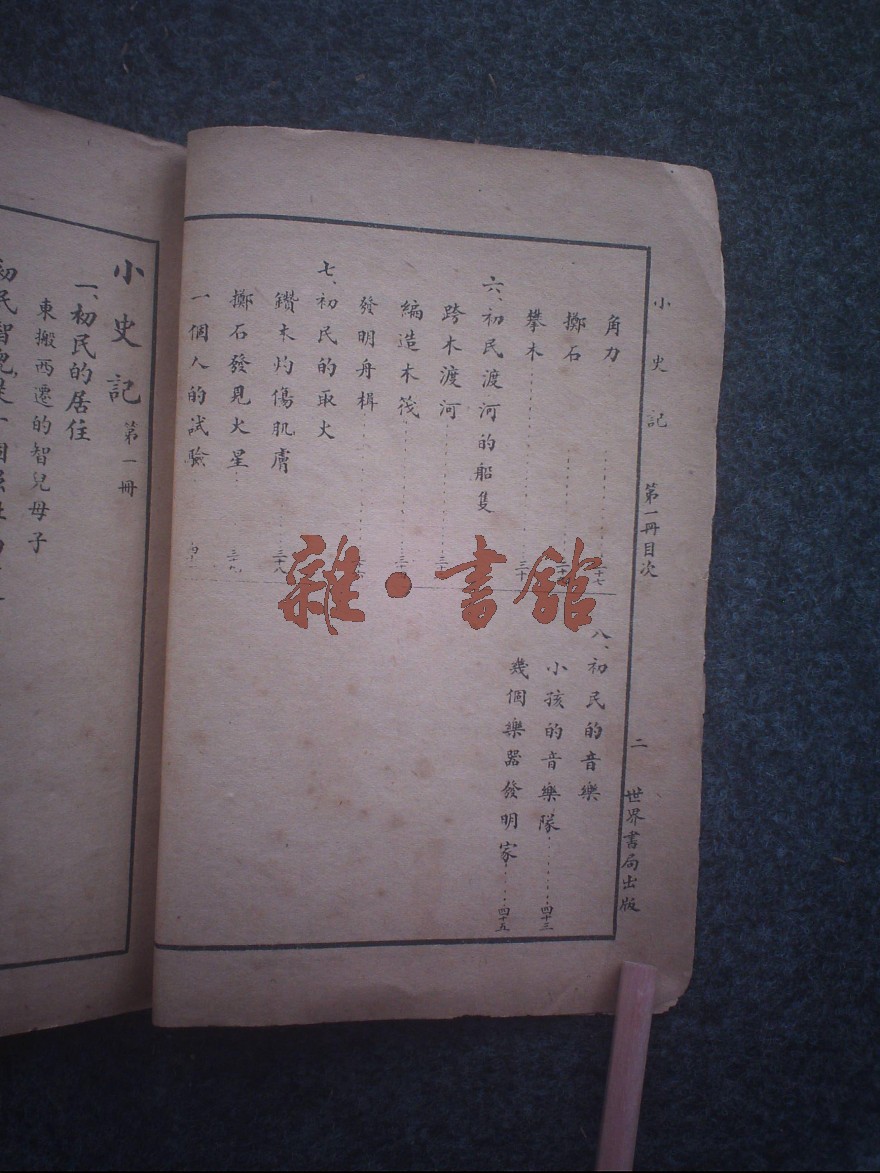 小史記 第一冊目次 二 世界書局出版
角力 二十七
擲石
攀木 三十
六、初民渡河的船隻
跨木渡河
編造木筏
發明舟楫
七、初民的取火
鑽木灼傷肌膚 三十八
擲石發見火星 三十九
一個人的試驗
八、初民的音樂
小孩的音樂隊 四十三
幾個樂器發明家 四十五
雜·書館
小史記 第一冊
一、初民的居住
東搬西遷的智兒母子